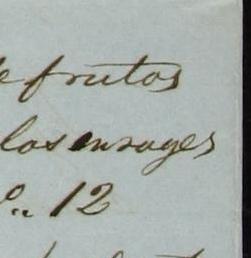 de frutos
los ensayes
12